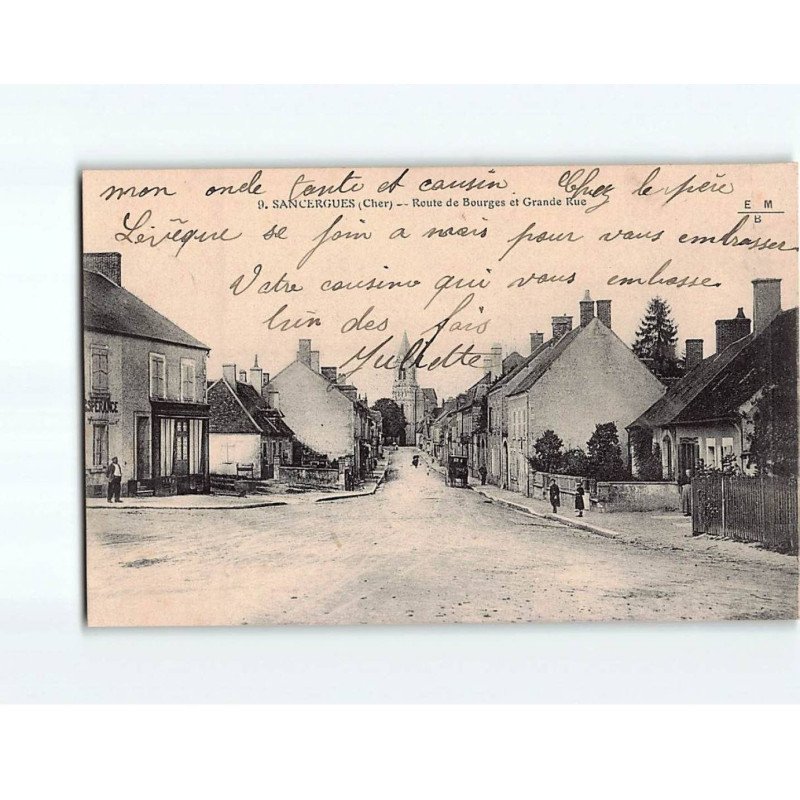 mon oncle tante et cousin. Chez le père
9. SANCERGUES (Cher) -- Route de Bourges et Grande Rue
E M
B
Levêque se join a mois pour vous embrasser
Votre cousine qui vous embasse
bien des fois
Juliette
ESPERANCE